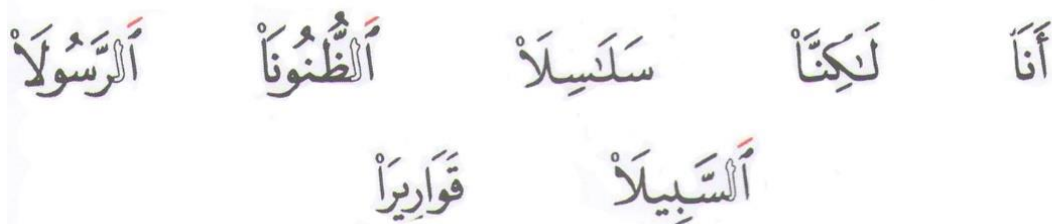 أَنَا۠ لَـٰكِنَّا۠ سَلَـٰسِلَا۠ ٱَلظُّنُونَا۠ ٱَلرَّسُولَا۠
ٱَلسَّبِيلَا۠ قَوَارِيرَا۠